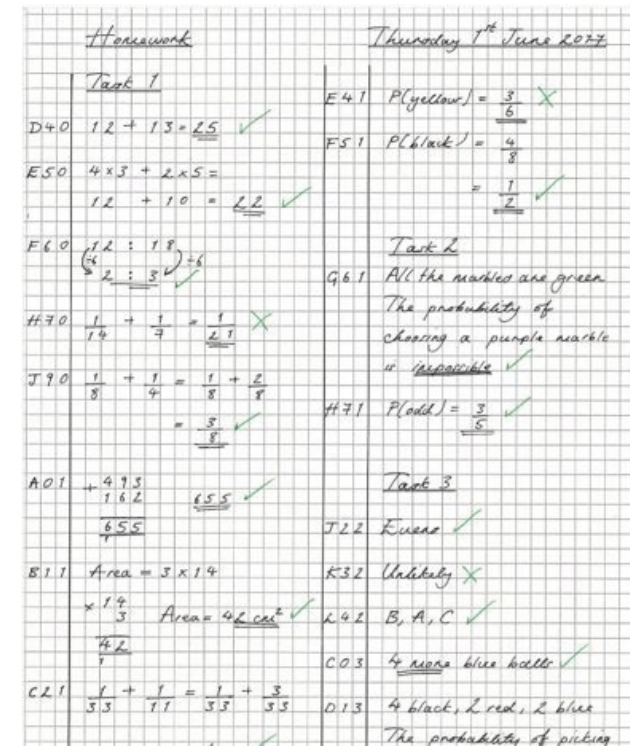 Homework
Task 1
D40 12 + 13 = 25
E50 4 × 3 + 2 × 5 =
12 + 10 = 22
F60 12 : 18
÷6 ÷6
2 : 3
H70 1/14 + 1/7 = 1/21
J90 1/8 + 1/4 = 1/8 + 2/8
= 3/8
A01 + 493
162 655
655
1
B11 Area = 3 × 14
× 14
3 Area = 42 cm²
42
1
C21 1/33 + 1/11 = 1/33 + 3/33
Thursday 1st June 2077
E41 P(yellow) = 3/6
F51 P(black) = 4/8
= 1/2
Task 2
G61 All the marbles are green
The probability of
choosing a purple marble
is impossible
H71 P(odd) = 3/5
Task 3
J22 Evens
K32 Unlikely
L42 B, A, C
C03 4 more blue balls
D13 4 black, 2 red, 2 blue
The probability of picking